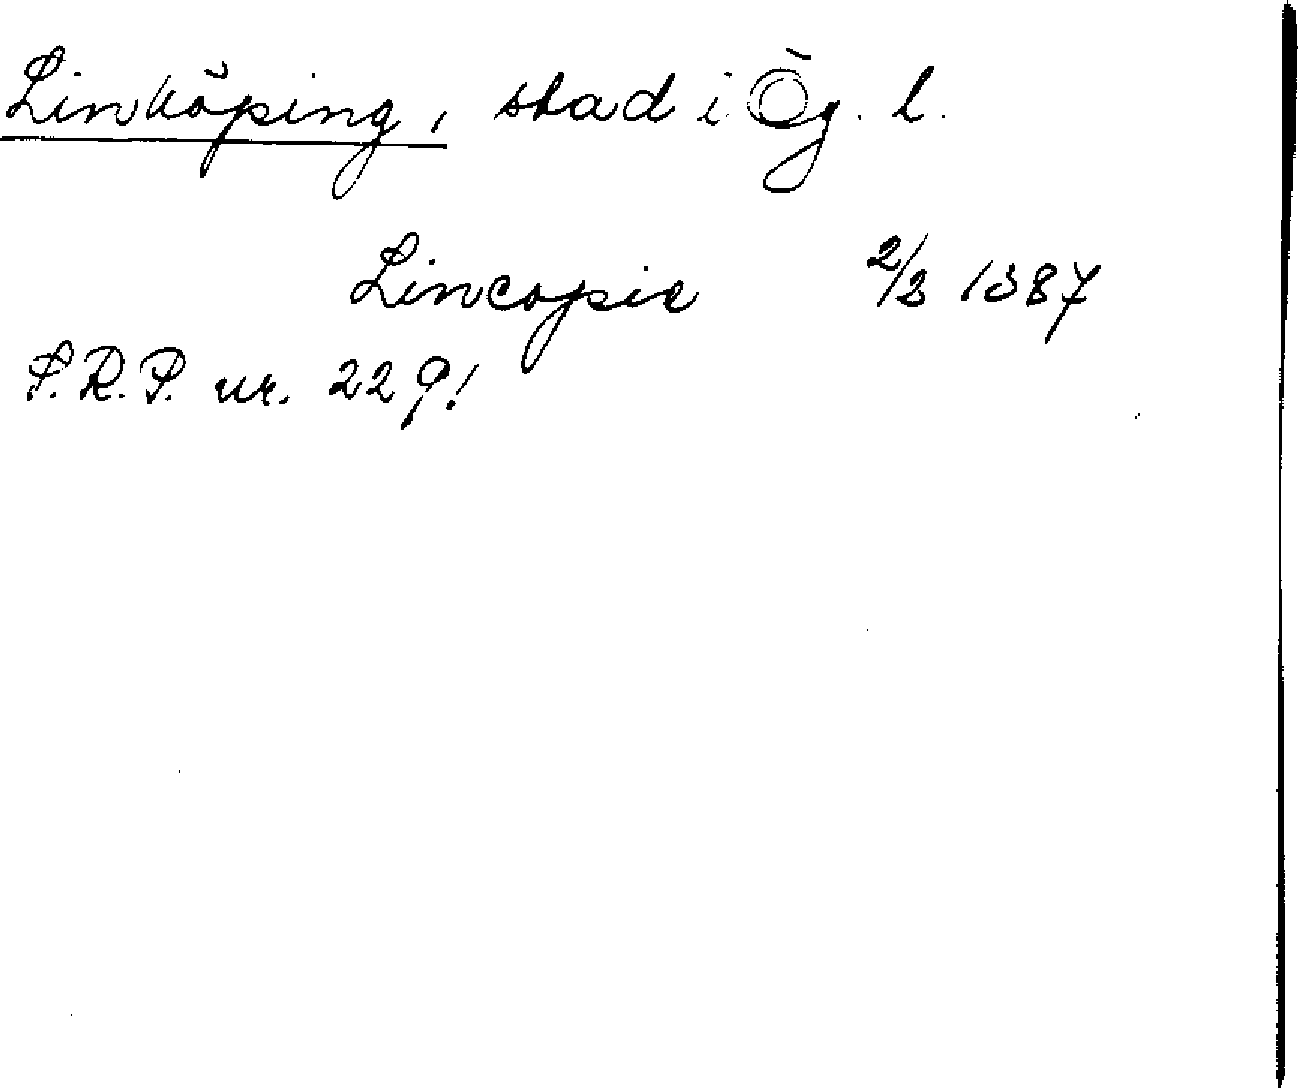 Linköping, stad i Ög. l.
Lincopie 2/3 1387
S.R.P. nr. 2291